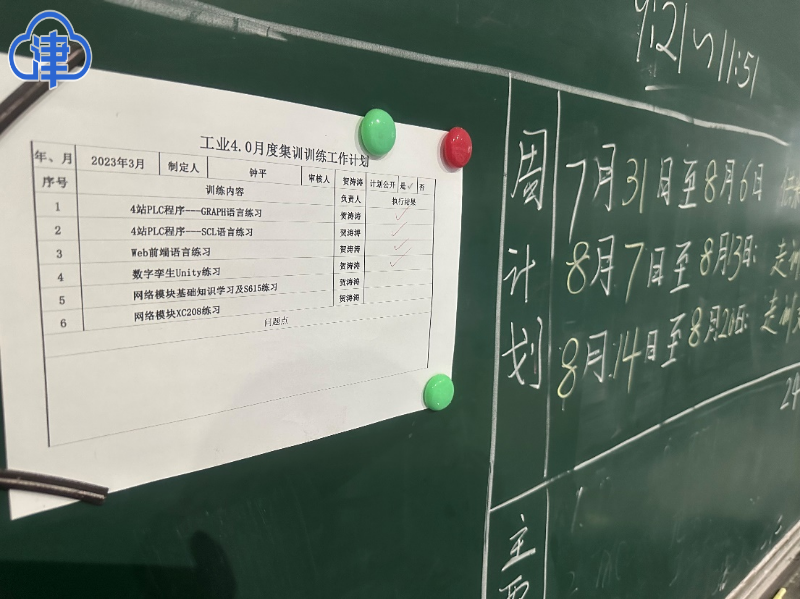 津
9:21~11:51
工业4.0月度集训训练工作计划
年、月 2023年3月 制定人 钟平 审核人 贺涛涛 计划公开 是✓ 否
序号 训练内容 负责人 执行结果
1 4站PLC程序---GRAPH语言练习 贺涛涛 ✓
2 4站PLC程序---SCL语言练习 贺涛涛 ✓
3 Web前端语言练习 贺涛涛 ✓
4 数字孪生Unity练习 贺涛涛 ✓
5 网络模块基础知识学习及S615练习 贺涛涛
6 网络模块XC208练习 贺涛涛
问题点
周计划
7月31日至8月6日
8月7日至8月13日:
8月14日至8月20日:
24
主要